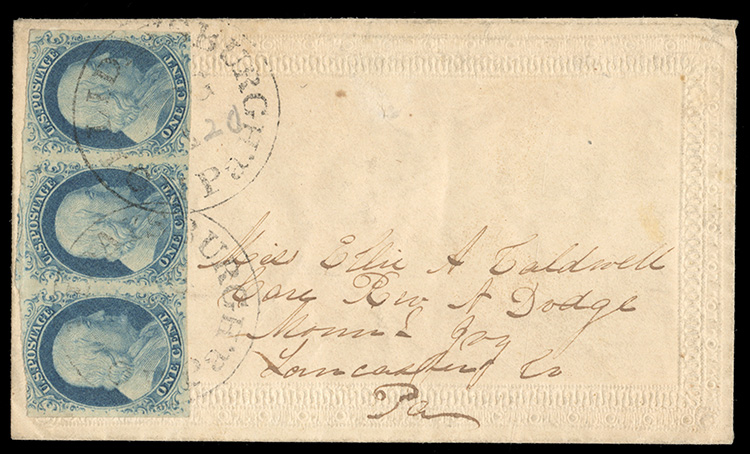 U.S. POSTAGE
ONE CENT
U.S. POSTAGE
ONE CENT
U.S. POSTAGE
ONE CENT
BURGH.
Pa.
20
BURGH
Pa.
Miss Ellie A Caldwell
Care Rev A Dodge
Mount Joy
Lancaster Co
Pa